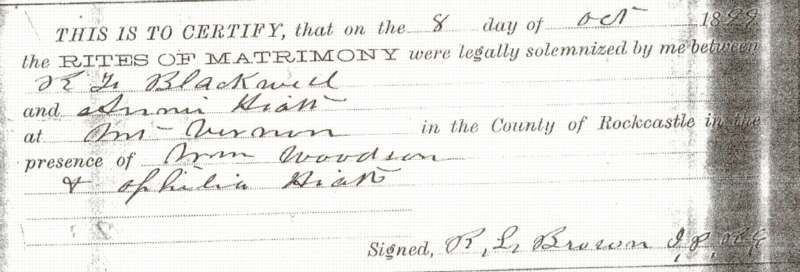 THIS IS TO CERTIFY, that on the 8 day of Oct 1899
the RITES OF MATRIMONY were legally solemnized by me between
Blackwell
and Annie Hiatt
at Mt Vernon in the County of Rockcastle in the
presence of Wm Woodson
& Ophelia Hiatt
Signed, R. L. Brown J. P.